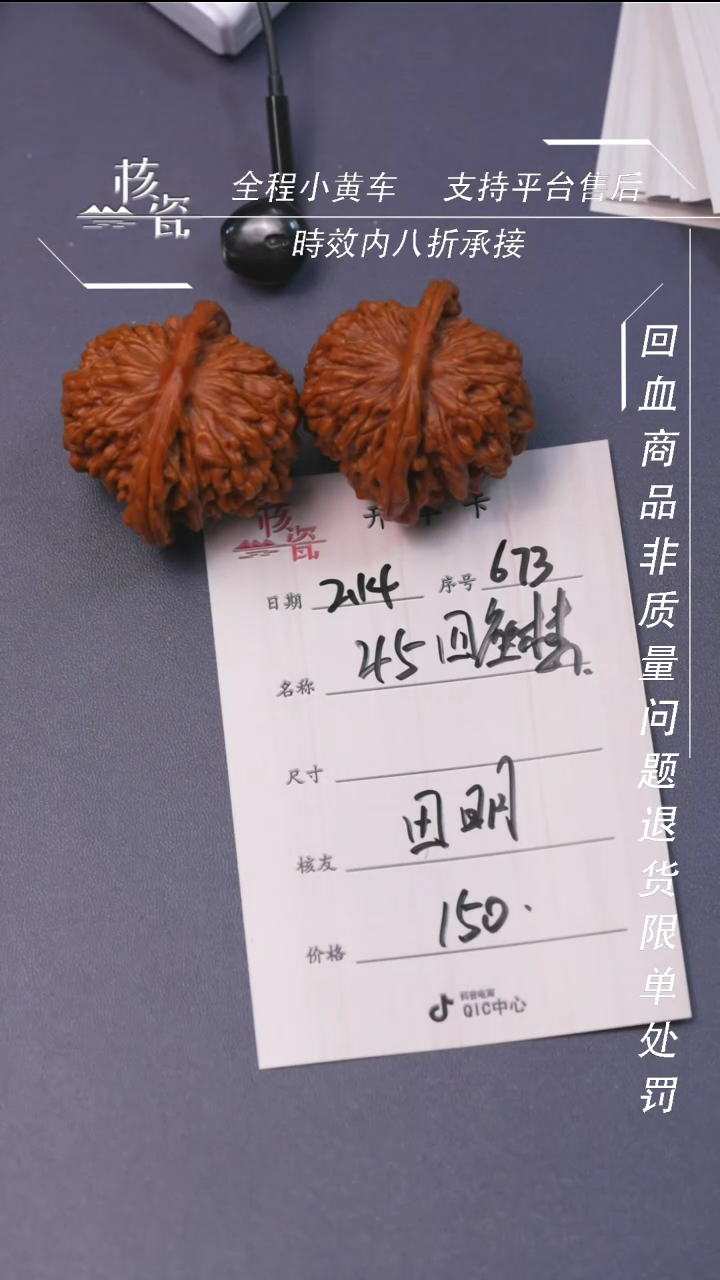 核瓷
全程小黄车 支持平台售后
時效内八折承接
回血商品非质量问题退货限单处罚
核瓷
卡
日期 2.14 序号 673
名称 45回
尺寸
核友 田明
价格 150.
抖音电商
QIC中心